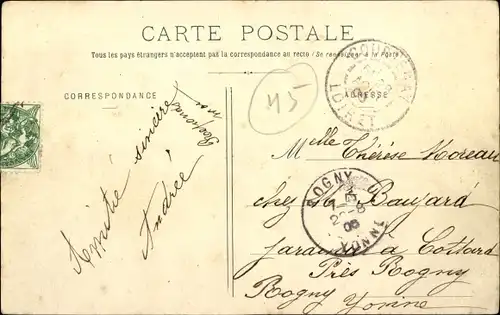 CARTE POSTALE
Tous les pays étrangers n'acceptent pas la correspondance au recto (Se renseigner à la Poste)
CORRESPONDANCE
ADRESSE
45
LOIRET
Amitié sincère
Andrée
Melle Thérèse Moreau
chez Mr Baujard
jardinier à Cottard
Près Rogny
Rogny Yonne
ROGNY
YONNE
08